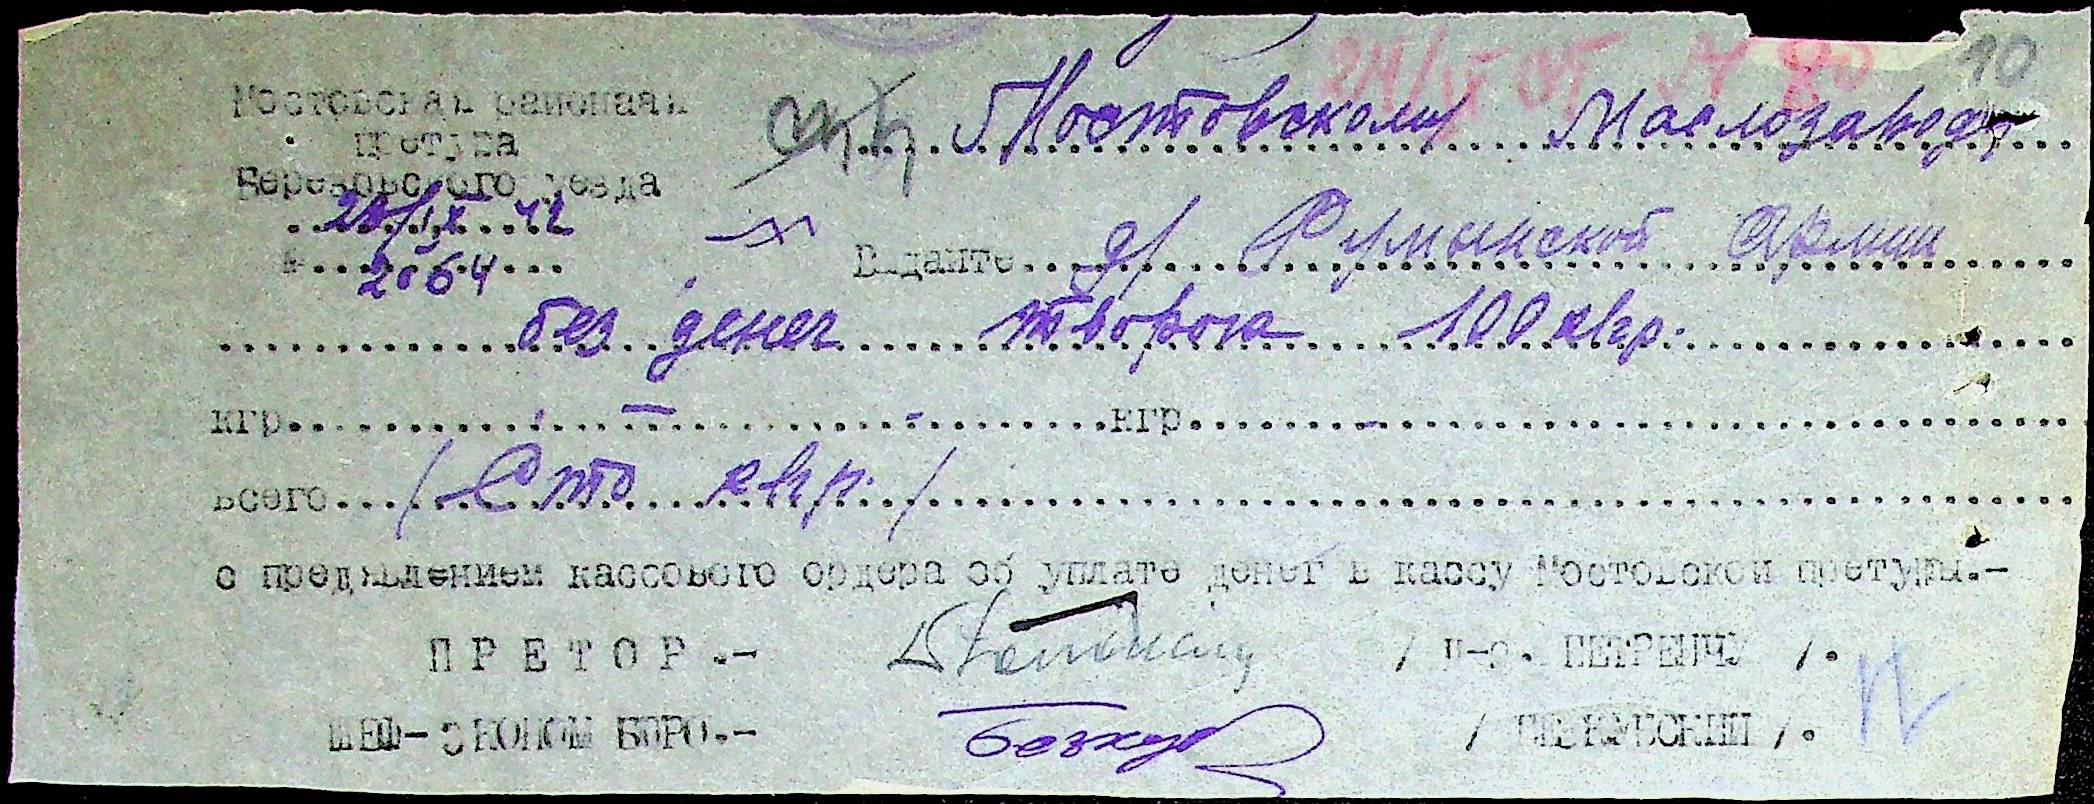 10
Мостовская районная
претура
Березовского уезда
24/IX 42
№ 2064
Мостовскому Маслозаводу
Выдайте д/ Румынской Армии
без денег творога 100 клгр.
кгр. - кгр. -
всего /Сто клгр./
с предявлением кассового ордера об уплате денег в кассу Мостовской претуры.-
ПРЕТОР.- / П-р. ПЕТРЕНЧУ /.
ШЕФ-ЭКОНОМ БЮРО.-